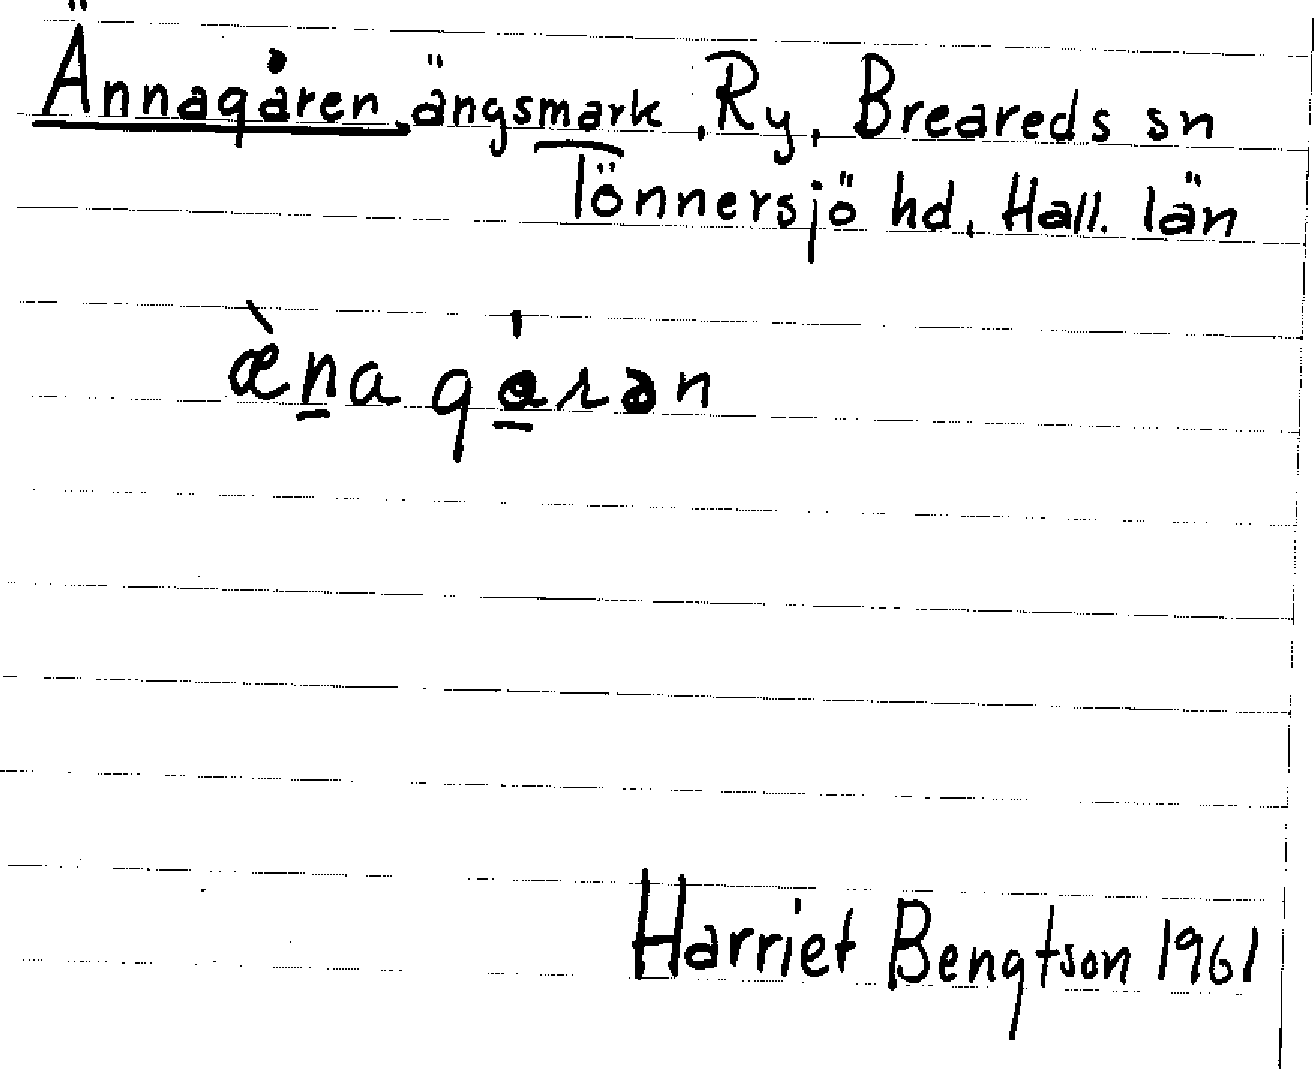 Ännagåren, ängsmark, Ry, Breareds sn
Tönnersjö hd, Hall. län
æ̀n̲a gȧ̲rən
Harriet Bengtson 1961